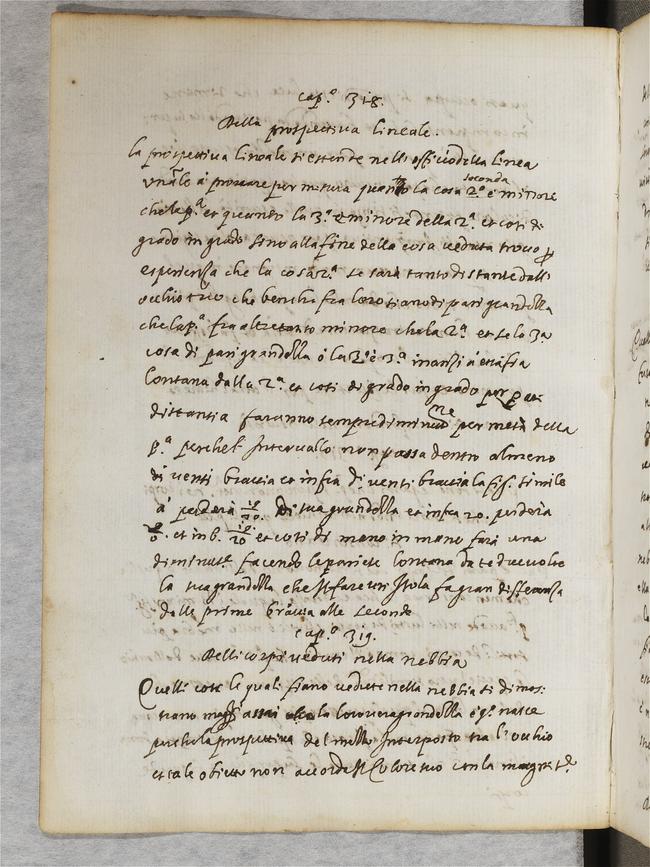 cap.º 318.
Della prospettiva lineale.
la prospettiva lineale si estende nell offitio della linea
a provare per misura quanto la cosa 2.ª seconda è minore
che la p.ª et quanto la 3.ª è minore della 2.ª et così di
grado in grado sino alla fine delle cose vedute trovo p
esperienza che la cosa 2.ª se sarà tanto distante dall
occhio tuo che benche fra loro siano di pari grandezza
che la p.ª fra altretanto minore che la 2.ª et se la 3a
cosa di pari grandezza 3.ª inanzi a essa fia
lontana dalla 2.ª et così di grado in grado per pari
distantia faranno sempre diminutione per metà della
p.ª perche l intervallo non passa dentro almeno
di venti braccia et infra di venti braccia la fig.ª simile
a perderà di sua grandezza et infra 20. perderia
et in 6. et così di mano in mano farà una
diminut.e facendo la pariete lontana da te due volte
la tua grandezza che il fare una sola fa gran differenza
dalle prime braccia alle seconde
cap.º 319.
Delli corpi veduti nella nebbia
Quelle cose le quali fiano vedute nella nebbia si dimos:
trano assai la loro vera grandezza e q.º nasce
perche la prospettiva del mezzo interposto tra l'occhio
et tale obietto non accorda il colore suo con la magnit.e